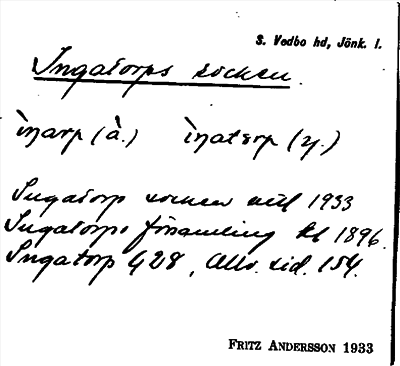 S. Vedbo hd, Jönk. l.
Ingatorps socken.
ìŋarp (ä.) ìŋatɘrp (y.)
Ingatorp socken utt 1933
Ingatorps församling Kf 1896.
Ingatorp G28, Allv. sid. 154.
FRITZ ANDERSSON 1933